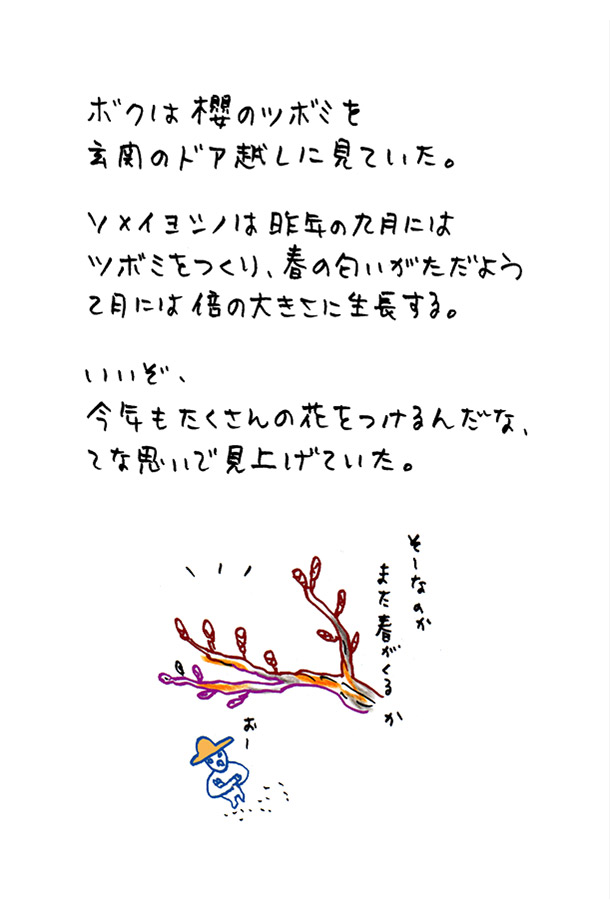 ボクは櫻のツボミを
玄関のドア越しに見ていた。
ソメイヨシノは昨年の九月には
ツボミをつくり、春の匂いがただよう
2月には倍の大きさに生長する。
いいぞ、
今年もたくさんの花をつけるんだな、
てな思いで見上げていた。
そーなのか
また春がくるか
おー